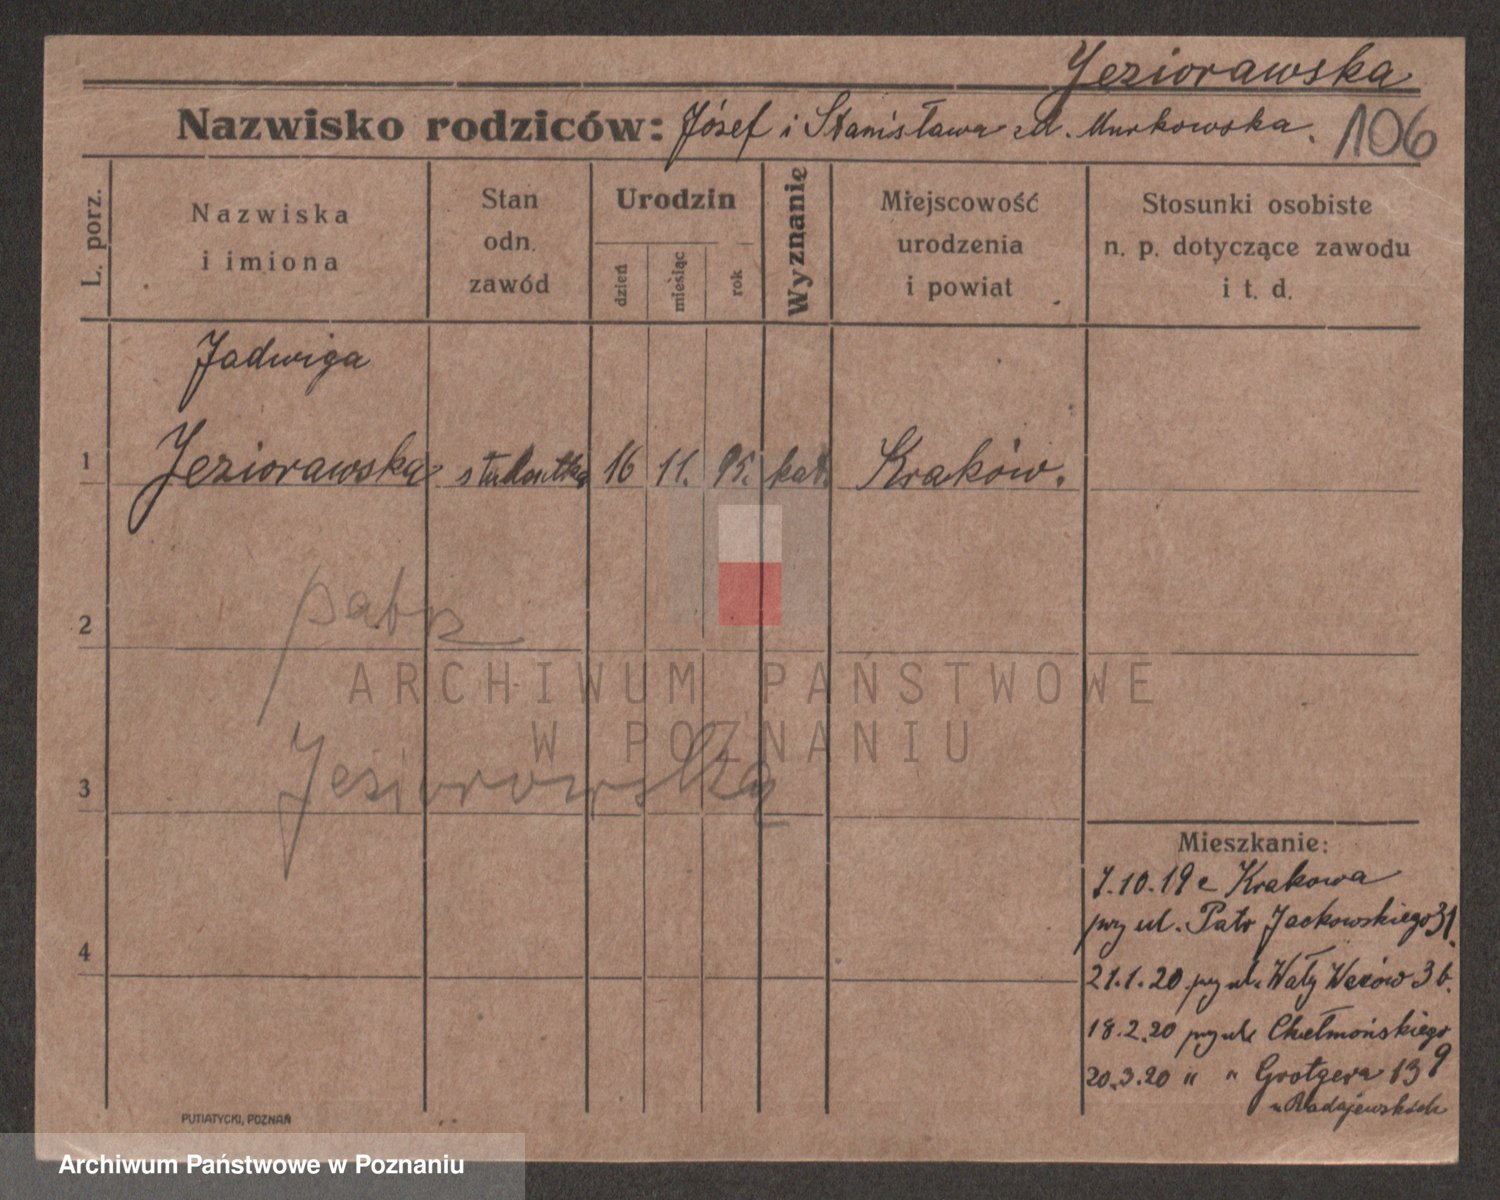 Jeziorawska
Nazwisko rodziców: Józef i Stanisława zd. Murkowska.
106
L. porz.
Nazwiska
i imiona
Stan
odn.
zawód
Urodzin
dzień
miesiąc
rok
Wyznanie
Miejscowość
urodzenia
i powiat
Stosunki osobiste
n. p. dotyczące zawodu
i t. d.
Jadwiga
1 Jeziorawska studentka 16 11. 95. kat. Kraków.
2
ARCHIWUM PAŃSTWOWE
W POZNANIU
Jeziorowską
3
4
Mieszkanie:
7.10.19 z Krakowa
przy ul. Patr Jackowskiego 31.
21.1.20 przy ul. Wały Wazów 3 b.
18.2.20 przy ul. Chełmońskiego 9
20.3.20 " " Grotgera 13
u Radajewskich
PUTIATYCKI, POZNAŃ
Archiwum Państwowe w Poznaniu